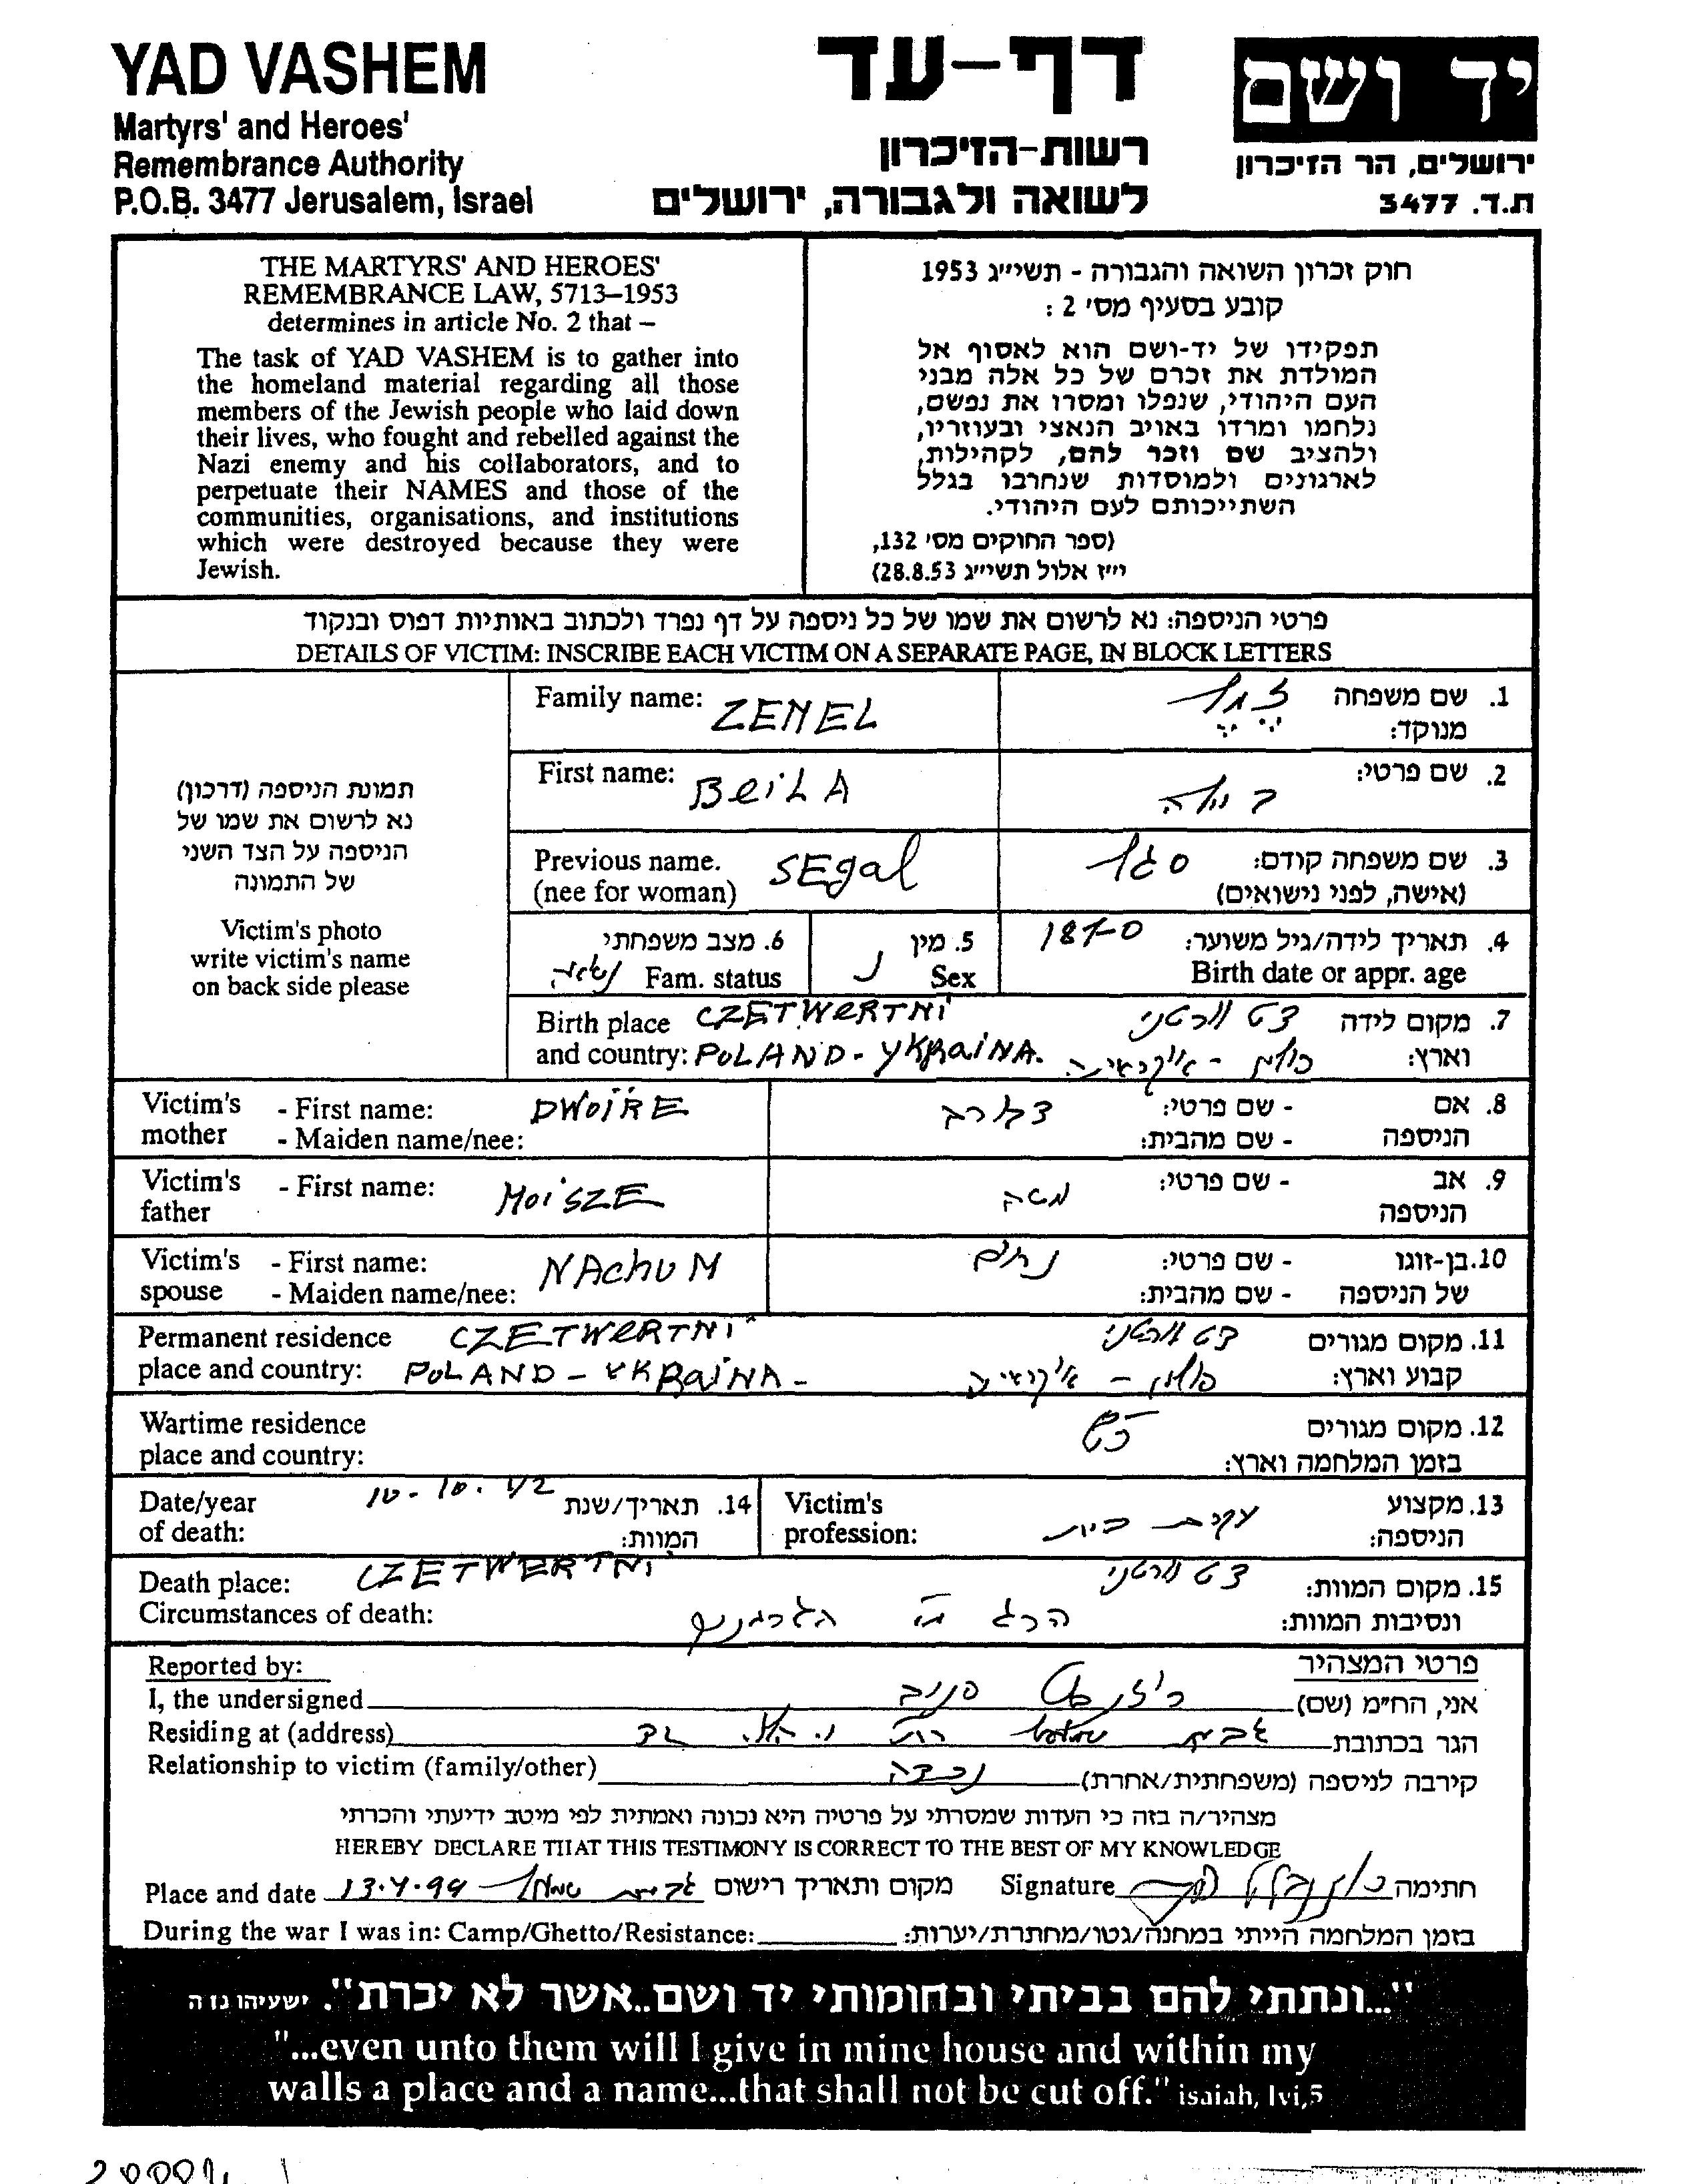 YAD VASHEM
Martyrs' and Heroes'
Remembrance Authority
P.O.B. 3477 Jerusalem, Israel
דף-עד
רשות-הזיכרון
לשואה ולגבורה, ירושלים
יד ושם
ירושלים, הר הזיכרון
ת.ד. 3477
THE MARTYRS' AND HEROES'
REMEMBRANCE LAW, 5713–1953
determines in article No. 2 that –
The task of YAD VASHEM is to gather into
the homeland material regarding all those
members of the Jewish people who laid down
their lives, who fought and rebelled against the
Nazi enemy and his collaborators, and to
perpetuate their NAMES and those of the
communities, organisations, and institutions
which were destroyed because they were
Jewish.
חוק זכרון השואה והגבורה - תשי״ג 1953
קובע בסעיף מס' 2 :
תפקידו של יד-ושם הוא לאסוף אל
המולדת את זכרם של כל אלה מבני
העם היהודי, שנפלו ומסרו את נפשם,
נלחמו ומרדו באויב הנאצי ובעוזריו,
ולהציב שם וזכר להם, לקהילות,
לארגונים ולמוסדות שנחרבו בגלל
השתייכותם לעם היהודי.
(ספר החוקים מס' 132,
י״ז אלול תשי״ג 28.8.53)
פרטי הניספה: נא לרשום את שמו של כל ניספה על דף נפרד ולכתוב באותיות דפוס ובנקוד
DETAILS OF VICTIM: INSCRIBE EACH VICTIM ON A SEPARATE PAGE, IN BLOCK LETTERS
תמונת הניספה (דרכון)
נא לרשום את שמו של
הניספה על הצד השני
של התמונה
Victim's photo
write victim's name
on back side please
Family name: ZEMEL
1. שם משפחה זמל
מנוקד:
First name: BeiLA
2. שם פרטי: ביילה
Previous name. SEgal
(nee for woman)
3. שם משפחה קודם: סגל
(אישה, לפני נישואים)
4. תאריך לידה/גיל משוער: 1870
Birth date or appr. age
5. מין נ
Sex
6. מצב משפחתי
Fam. status נשואה
Birth place CZETWERTNI
and country: POLAND - YKRAINA.
7. מקום לידה צטוורטני
וארץ: פולין - אוקראינה
Victim's - First name: DWOIRE
mother - Maiden name/nee:
8. אם - שם פרטי:
הניספה - שם מהבית:
Victim's - First name: MOISZE
father
9. אב - שם פרטי: משה
הניספה
Victim's - First name: NAchUM
spouse - Maiden name/nee:
10. בן-זוגו - שם פרטי: נחום
של הניספה - שם מהבית:
Permanent residence CZETWERTNI
place and country: POLAND - YKRAINA -
11. מקום מגורים צטוורטני
קבוע וארץ: פולין - אוקראינה
Wartime residence
place and country:
12. מקום מגורים כנ״ל
בזמן המלחמה וארץ:
Date/year 10.10.42
of death:
14. תאריך/שנת
המוות:
Victim's
profession:
13. מקצוע עקרת בית
הניספה:
Death place: CZETWERTNI
Circumstances of death:
15. מקום המוות: צטוורטני
ונסיבות המוות: הרג ע״י הגרמנים
Reported by:
פרטי המצהיר
I, the undersigned
אני, החי״מ (שם)
Residing at (address)
הגר בכתובת
Relationship to victim (family/other)
קירבה לניספה (משפחתית/אחרת) נכדה
מצהיר/ה בזה כי העדות שמסרתי על פרטיה היא נכונה ואמתית לפי מיטב ידיעתי והכרתי
HEREBY DECLARE THAT THIS TESTIMONY IS CORRECT TO THE BEST OF MY KNOWLEDGE
Place and date 13.4.99 קרית שמואל מקום ותאריך רישום
Signature חתימה
During the war I was in: Camp/Ghetto/Resistance:
בזמן המלחמה הייתי במחנה/גטו/מחתרת/יערות:
"...ונתתי להם בביתי ובחומותי יד ושם..אשר לא יכרת". ישעיהו נו ה
"...even unto them will I give in mine house and within my
walls a place and a name...that shall not be cut off." isaiah, lvi,5